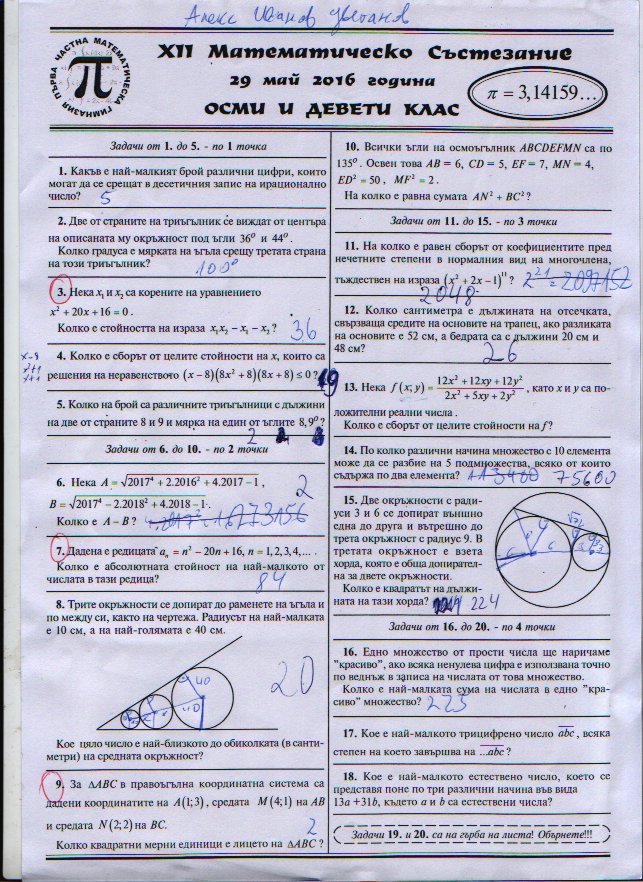 Алекс Иванов Цветанов
ПЪРВА ЧАСТНА МАТЕМАТИЧЕСКА ГИМНАЗИЯ
π
XII Математическо Състезание
29 май 2016 година
ОСМИ И ДЕВЕТИ КЛАС
π = 3,14159...
Задачи от 1. до 5. - по 1 точка
1. Какъв е най-малкият брой различни цифри, които
могат да се срещат в десетичния запис на ирационално
число? 5
2. Две от страните на триъгълник се виждат от центъра
на описаната му окръжност под ъгли 36° и 44°.
Колко градуса е мярката на ъгъла срещу третата страна
на този триъгълник? 100°
3. Нека x₁ и x₂ са корените на уравнението
x² + 20x + 16 = 0.
Колко е стойността на израза x₁x₂ − x₁ − x₂ ? 36
4. Колко е сборът от целите стойности на x, които са
решения на неравенството (x − 8)(8x² + 8)(8x + 8) ≤ 0 ?
5. Колко на брой са различните триъгълници с дължини
на две от страните 8 и 9 и мярка на един от ъглите 8,9° ?
2
Задачи от 6. до 10. - по 2 точки
6. Нека A = √2017⁴ + 2.2016² + 4.2017 − 1 ,
B = √2017⁴ − 2.2018² + 4.2018 − 1 .
Колко е A − B ?
2
7. Дадена е редицата aₙ = n² − 20n + 16, n = 1,2,3,4,... .
Колко е абсолютната стойност на най-малкото от
числата в тази редица? 84
8. Трите окръжности се допират до раменете на ъгъла и
по между си, както на чертежа. Радиусът на най-малката
е 10 см, а на най-голямата е 40 см.
40
20
40
Кое цяло число е най-близкото до обиколката (в санти-
метри) на средната окръжност?
9. За ΔABC в правоъгълна координатна система са
дадени координатите на A(1;3), средата M(4;1) на AB
и средата N(2;2) на BC.
2
Колко квадратни мерни единици е лицето на ΔABC ?
10. Всички ъгли на осмоъгълник ABCDEFMN са по
135°. Освен това AB = 6, CD = 5, EF = 7, MN = 4,
ED² = 50 , MF² = 2 .
На колко е равна сумата AN² + BC² ?
Задачи от 11. до 15. - по 3 точки
11. На колко е равен сборът от коефициентите пред
нечетните степени в нормалния вид на многочлена,
тъждествен на израза (x² + 2x − 1)¹¹ ? 2²¹ = 2097152
2048
12. Колко сантиметра е дължината на отсечката,
свързваща средите на основите на трапец, ако разликата
на основите е 52 см, а бедрата са с дължини 20 см и
48 см? 26
13. Нека f(x;y) = 12x² + 12xy + 12y² / 2x² + 5xy + 2y² , като x и y са по-
ложителни реални числа .
Колко е сборът от целите стойности на f ?
14. По колко различни начина множество с 10 елемента
може да се разбие на 5 подмножества, всяко от които
съдържа по два елемента? 113400 75600
15. Две окръжности с ради-
уси 3 и 6 се допират външно
една до друга и вътрешно до
трета окръжност с радиус 9. В
третата окръжност е взета
хорда, която е обща допирател-
на за двете окръжности.
Колко е квадратът на дължи-
ната на тази хорда? 224
Задачи от 16. до 20. - по 4 точки
16. Едно множество от прости числа ще наричаме
"красиво", ако всяка ненулева цифра е използвана точно
по веднъж в записа на числата от това множество.
Колко е най-малката сума на числата в едно "кра-
сиво" множество? 225
17. Кое е най-малкото трицифрено число abc , всяка
степен на което завършва на ...abc ?
18. Кое е най-малкото естествено число, което се
представя поне по три различни начина във вида
13a +31b, където a и b са естествени числа?
Задачи 19. и 20. са на гърба на листа! Обърнете!!!